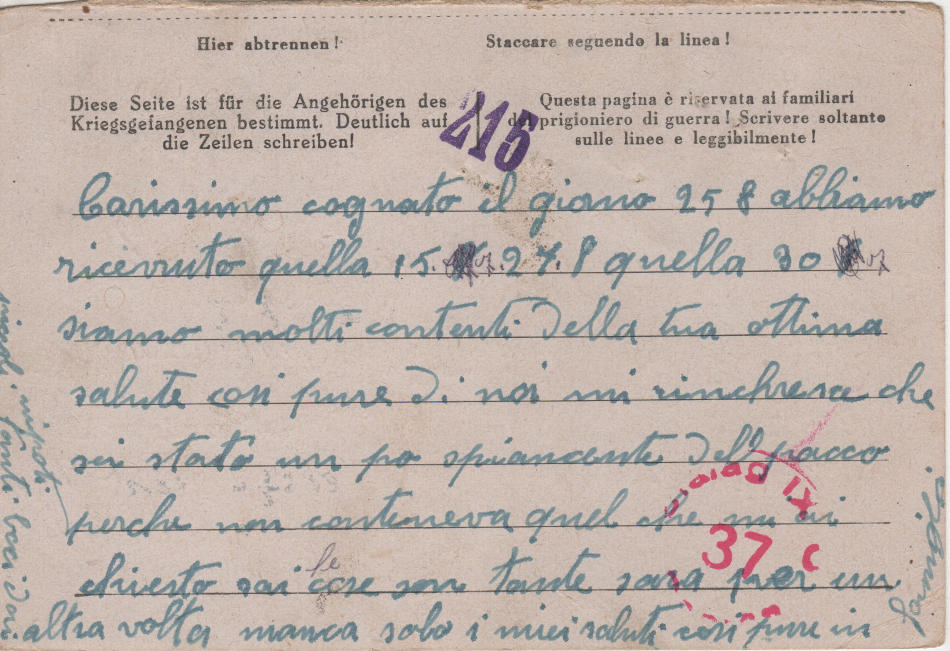 Hier abtrennen!
Staccare seguendo la linea!
Diese Seite ist für die Angehörigen des
Kriegsgefangenen bestimmt. Deutlich auf
die Zeilen schreiben!
215
Questa pagina è riservata ai familiari
del prigioniero di guerra! Scrivere soltanto
sulle linee e leggibilmente!
Carissimo cognato il giorno 25 8 abbiamo
ricevuto quella 15. 07. 27. 8 quella 30 07
siamo molti contenti della tua ottima
salute cosi pure di noi mi rinchresce che
sei stato un po spiancente dell pacco
perche non conteneva quel che mi ai
chiesto sai le cose son tante sara per un
altra volta manca solo i miei saluti cosi pure in
famigli
nipoti
tanti baci
Stalag IX C
37